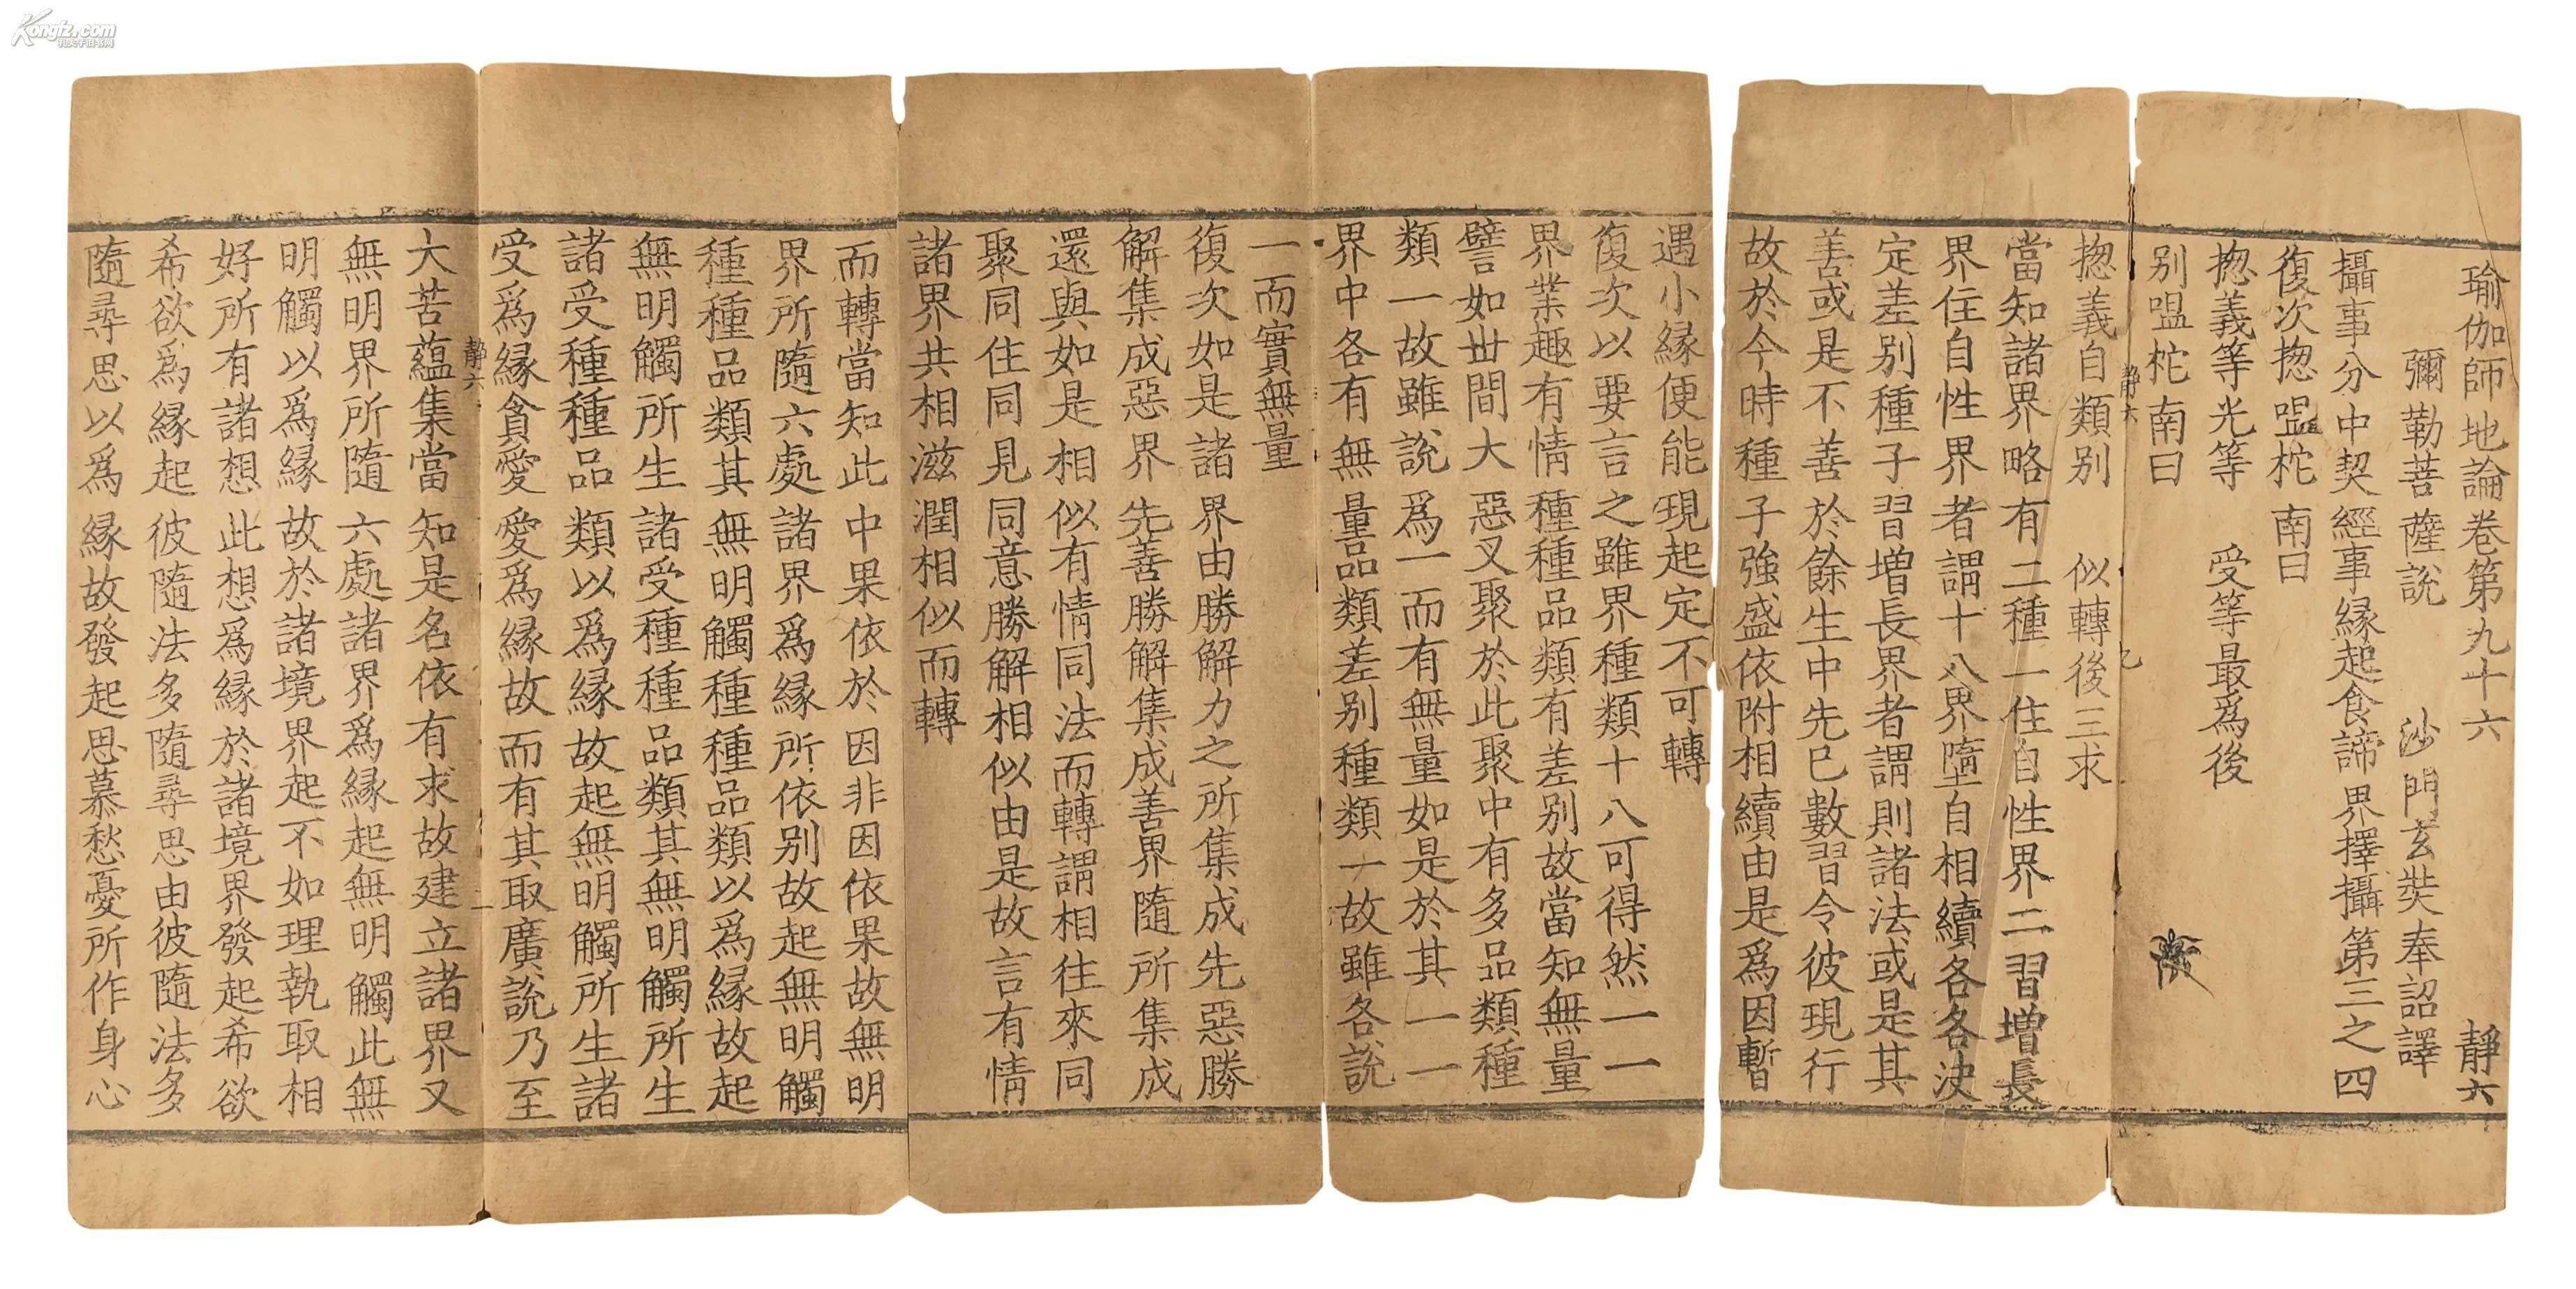 瑜伽師地論卷第九十六 靜六
彌勒菩薩說 沙門玄奘奉詔譯
攝事分中契經事緣起食諦界擇攝第三之四
復次揔嗢柁南曰
揔義等光等 受等最爲後
别嗢柁南曰
靜六 乙
揔義自類别 似轉後三求
當知諸界略有二種一住自性界二習增長
界住自性界者謂十八界墮自相續各各決
定差别種子習增長界者謂則諸法或是其
善或是不善於餘生中先已數習令彼現行
故於今時種子強盛依附相續由是爲因暫
遇小緣便能現起定不可轉
復次以要言之雖界種類十八可得然一一
界業趣有情種種品類有差别故當知無量
譬如世間大惡叉聚於此聚中有多品類種
類一故雖說爲一而有無量如是於其一一
界中各有無量品類差别種類一故雖各說
一而實無量
復次如是諸界由勝解力之所集成先惡勝
解集成惡界先善勝解集成善界隨所集成
還與如是相似有情同法而轉謂相往來同
聚同住同見同意勝解相似由是故言有情
諸界共相滋潤相似而轉
而轉當知此中果依於因非因依果故無明
界所隨六處諸界爲緣所依别故起無明觸
種種品類其無明觸種種品類以爲緣故起
無明觸所生諸受種種品類其無明觸所生
諸受種種品類以爲緣故起無明觸所生諸
受爲緣貪愛愛爲緣故而有其取廣說乃至
靜六 二
大苦蘊集當知是名依有求故建立諸界又
無明界所隨六處諸界爲緣起無明觸此無
明觸以爲緣故於諸境界起不如理執取相
好所有諸想此想爲緣於諸境界發起希欲
希欲爲緣起彼隨法多隨尋思由彼隨法多
隨尋思以爲緣故發起思慕愁憂所作身心
Kongfz.com
孔夫子旧书网